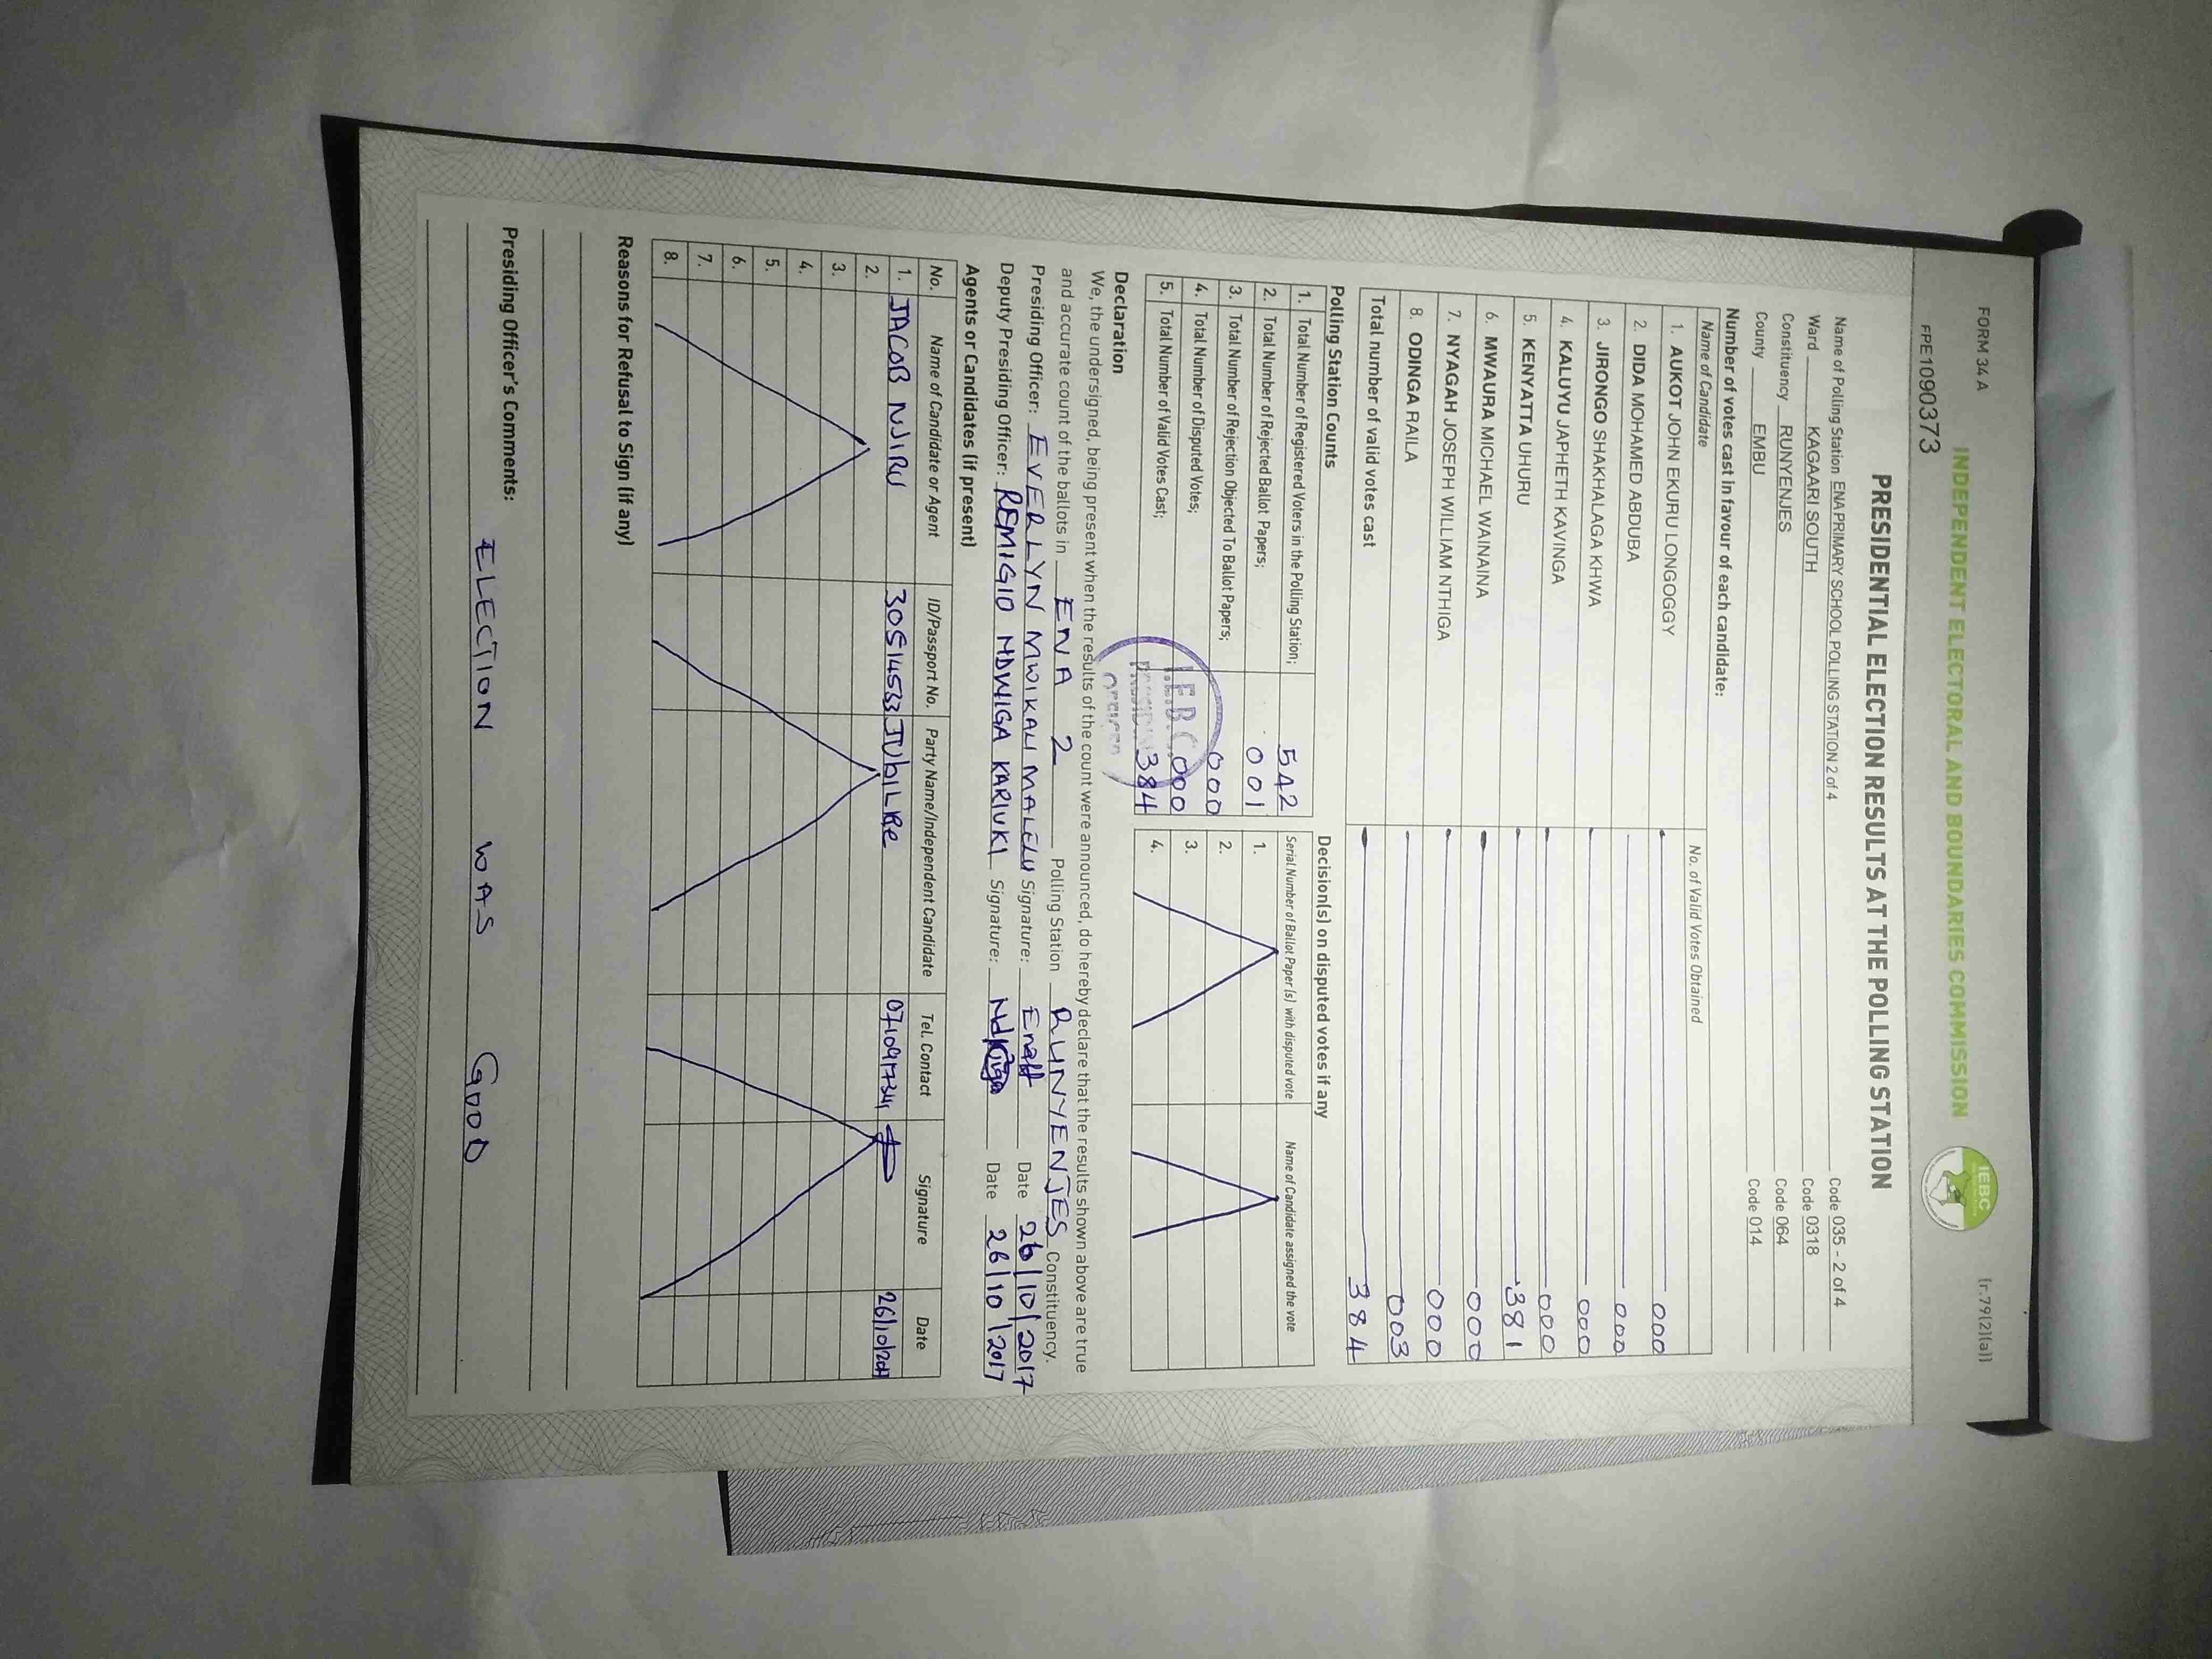 FORM 34 A
(r.79(2)(a))
INDEPENDENT ELECTORAL AND BOUNDARIES COMMISSION
IEBC
FPE1090373
PRESIDENTIAL ELECTION RESULTS AT THE POLLING STATION
Name of Polling Station ENA PRIMARY SCHOOL POLLING STATION 2 of 4 Code 035 - 2 of 4
Ward KAGAARI SOUTH Code 0318
Constituency RUNYENJES Code 064
County EMBU Code 014
Number of votes cast in favour of each candidate:
Name of Candidate No. of Valid Votes Obtained
1. AUKOT JOHN EKURU LONGOGGY 000
2. DIDA MOHAMED ABDUBA 000
3. JIRONGO SHAKHALAGA KHWA 000
4. KALUYU JAPHETH KAVINGA 000
5. KENYATTA UHURU 381
6. MWAURA MICHAEL WAINAINA 000
7. NYAGAH JOSEPH WILLIAM NTHIGA 000
8. ODINGA RAILA 003
Total number of valid votes cast 384
Polling Station Counts Decision(s) on disputed votes if any
1. Total Number of Registered Voters in the Polling Station; 542 Serial Number of Ballot Paper (s) with disputed vote Name of Candidate assigned the vote
2. Total Number of Rejected Ballot Papers; 001 1.
3. Total Number of Rejection Objected To Ballot Papers; 000 2.
4. Total Number of Disputed Votes; 000 3.
5. Total Number of Valid Votes Cast; 384 4.
I.E.B.C.
PRESIDING
OFFICER
Declaration
We, the undersigned, being present when the results of the count were announced, do hereby declare that the results shown above are true
and accurate count of the ballots in ENA 2 Polling Station RUNYENJES Constituency.
Presiding Officer: EVERLYN MWIKALI MALELU Signature: Date 26/10/2017
Deputy Presiding Officer: REMIGIO NDWIGA KARIUKI Signature: Date 26/10/2017
Agents or Candidates (if present)
No. Name of Candidate or Agent ID/Passport No. Party Name/Independent Candidate Tel. Contact Signature Date
1. JACOB NJIRU 30514533 JUbILEe
2.
3.
4.
5.
6.
7.
8.
Reasons for Refusal to Sign (if any)
Presiding Officer's Comments:
ELECTION WAS GOOD